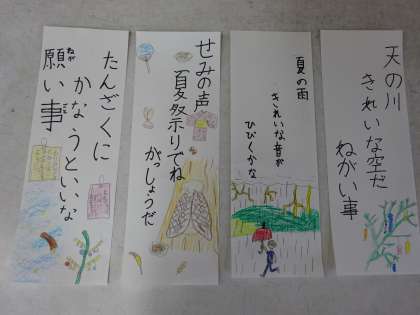 天の川
きれいな空だ
ねがい事
夏の雨
きれいな音が
ひびくかな
せみの声
夏祭りでね
がっしょうだ
たんざくに
かなうといいな
願い事
ねが